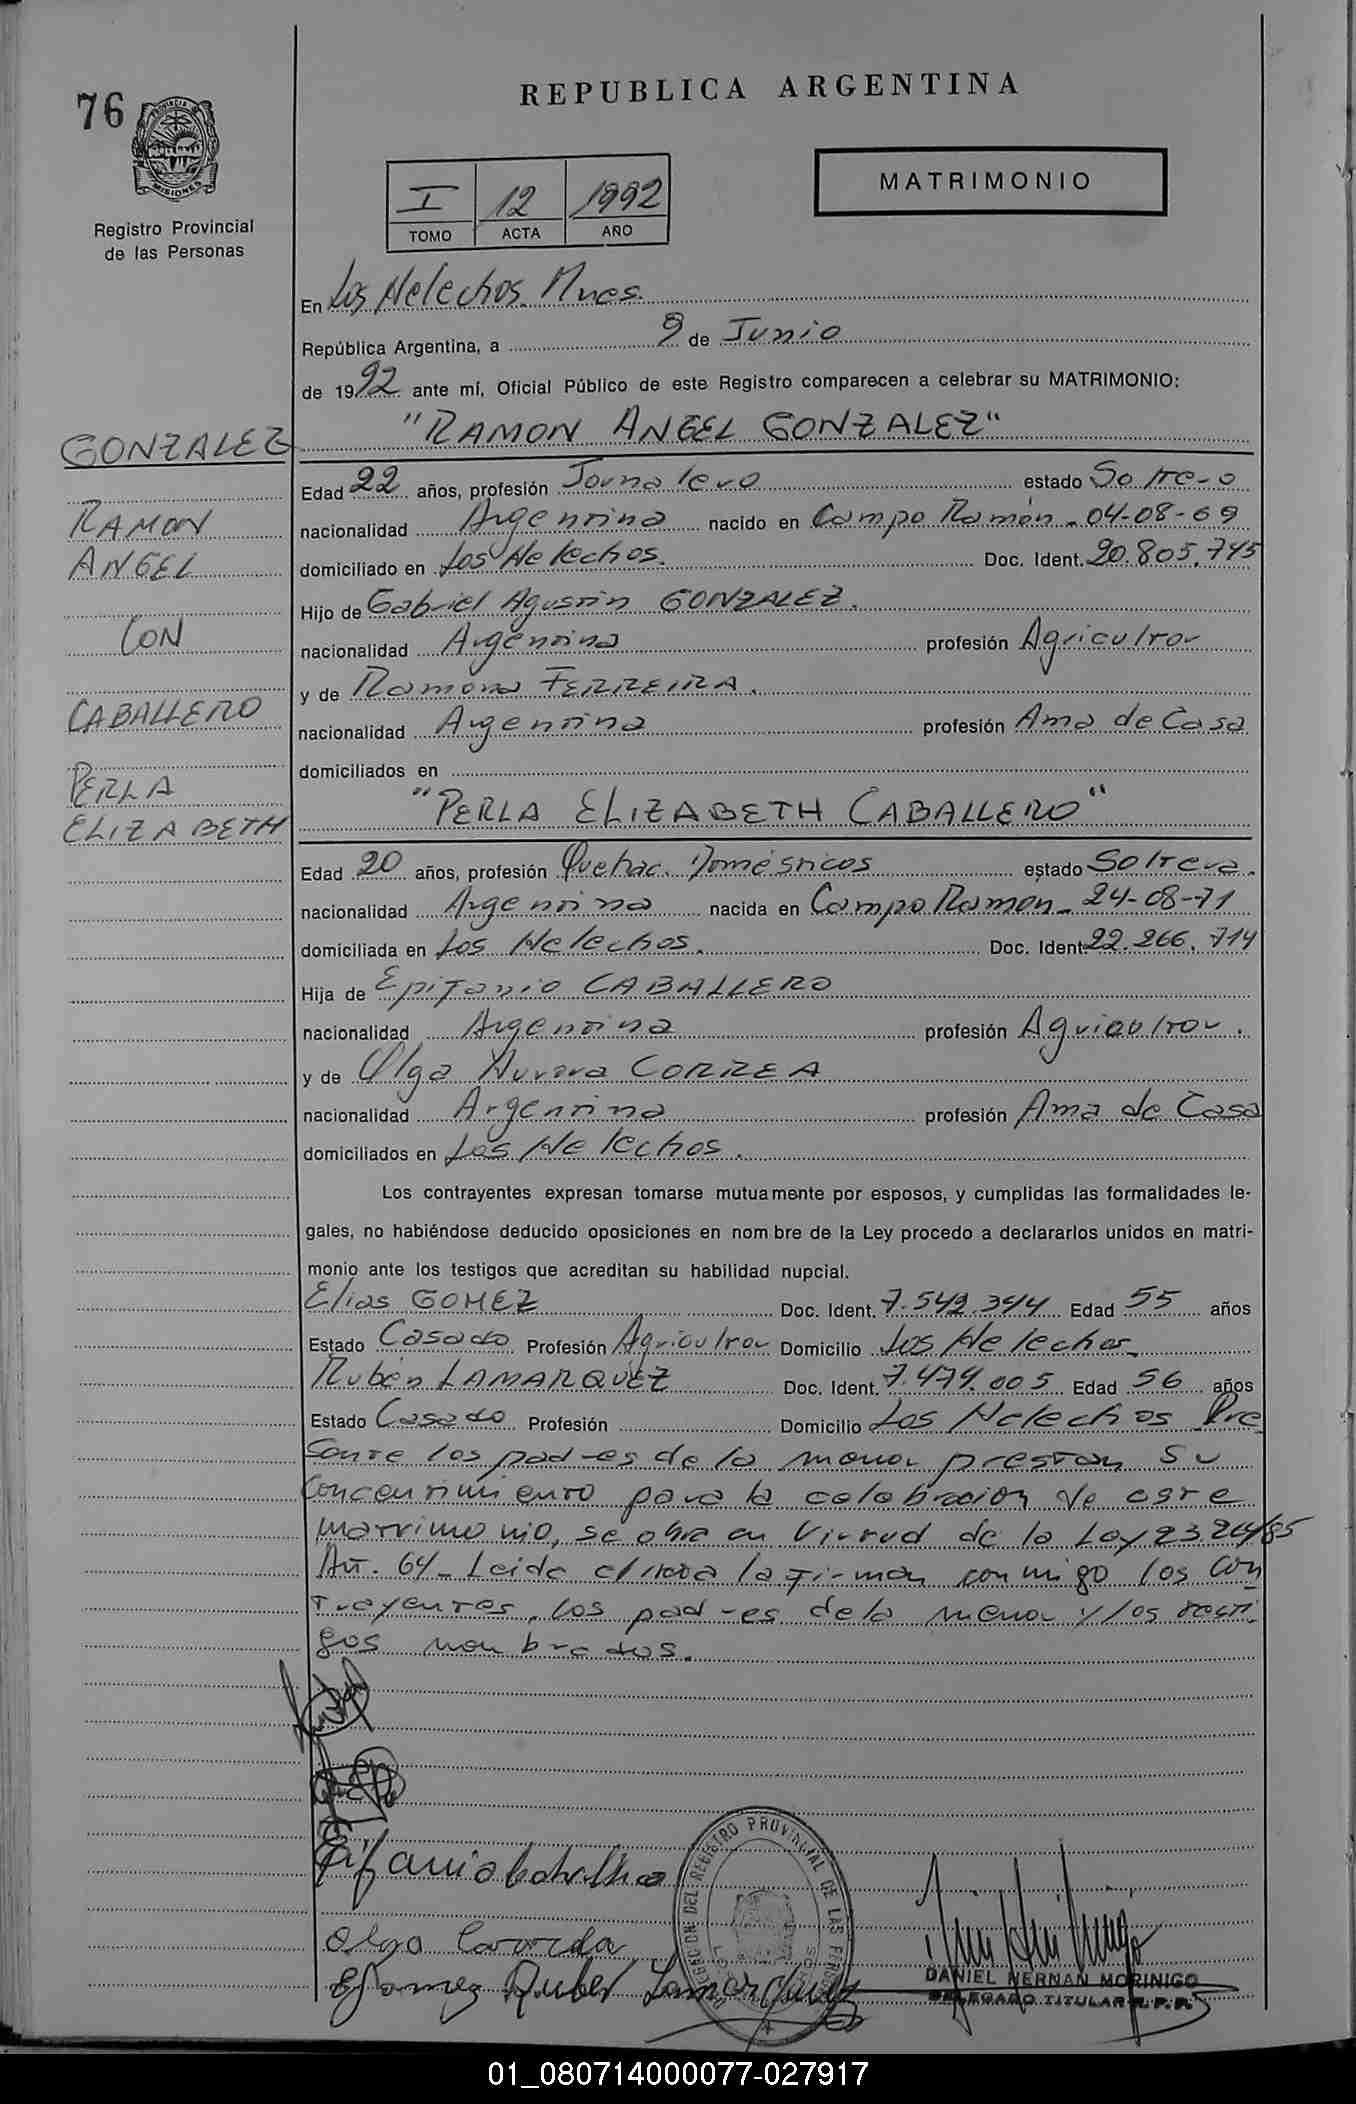 76
REPUBLICA ARGENTINA
PROVINCIA DE MISIONES
Registro Provincial
de las Personas
I 12 1992
TOMO ACTA AÑO
MATRIMONIO
En Los Helechos. Mnes.
República Argentina, a 9 de Junio
de 1992 ante mí, Oficial Público de este Registro comparecen a celebrar su MATRIMONIO:
GONZALEZ
RAMON
ANGEL
CON
CABALLERO
PERLA
ELIZABETH
"RAMON ANGEL GONZALEZ"
Edad 22 años, profesión Jornalero estado Soltero
nacionalidad Argentina nacido en Campo Ramón. 04-08-69
domiciliado en Los Helechos. Doc. Ident. 20.805.745
Hijo de Gabriel Agustin GONZALEZ.
nacionalidad Argentina profesión Agricultor
y de Ramona FERREIRA.
nacionalidad Argentina profesión Ama de Casa
domiciliados en
"PERLA ELIZABETH CABALLERO"
Edad 20 años, profesión Quehac. Domésticos estado Soltera.
nacionalidad Argentina nacida en Campo Ramón. 24-08-71
domiciliada en Los Helechos. Doc. Ident. 22.266.714
Hija de Epifanio CABALLERO
nacionalidad Argentina profesión Agricultor.
y de Olga Aurora CORREA
nacionalidad Argentina profesión Ama de Casa
domiciliados en Los Helechos.
Los contrayentes expresan tomarse mutuamente por esposos, y cumplidas las formalidades le-
gales, no habiéndose deducido oposiciones en nombre de la Ley procedo a declararlos unidos en matri-
monio ante los testigos que acreditan su habilidad nupcial.
Elias GOMEZ Doc. Ident. 7.542.344 Edad 55 años
Estado Casado Profesión Agricultor Domicilio Los Helechos.
Rubén LAMARQUEZ Doc. Ident. 7.474.005 Edad 56 años
Estado Casado Profesión Domicilio Los Helechos Pre
sente los padres de la menor prestan su
Concentimiento para la celebracion de este
matrimonio, se obra en Virtud de la Ley 23264/85
Art. 64. Leida el acta la firman conmigo los con
trayentes, los padres de la menor y los testi
gos nombrados.
Epifanio
Olga
EGomez Ruber Lamarquez
REGISTRO PROVINCIAL DE LAS PERSONAS
DANIEL HERNAN MORINIGO
DELEGADO TITULAR R.P.P.
01_080714000077-027917